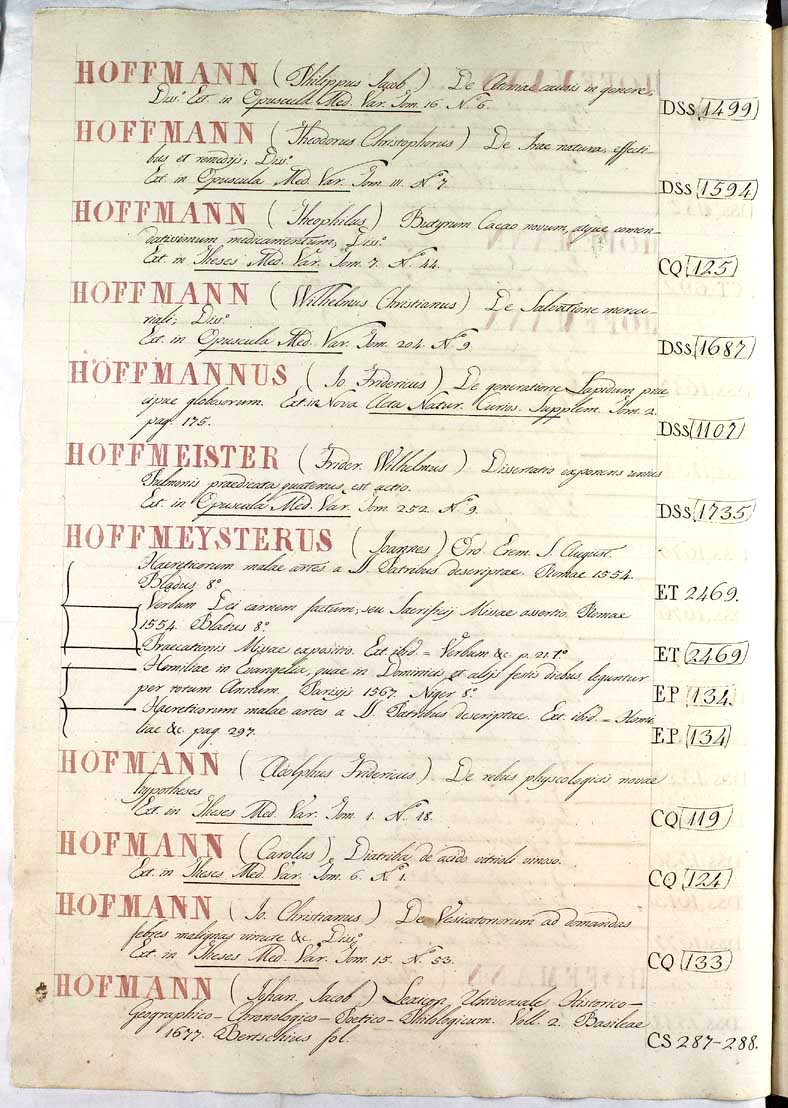 HOFFMANN (Philippus Jacob) De Animal causis in genere, 
Diss.º Ext. in Opuscula Med. Var. Tom. 16. N.º 6. DSS 1499
HOFFMANN (Theodorus Christophorus) De Irae natura, effecti-
bus et remedijs; Diss.º
Ext. in Opuscula Med. Var. Tom. 111. N.º 7. DSS 1594
HOFFMANN (Theophilus) Butyrum Cacao novum, atque comen-
datissimum medicamentum, Diss.º
Ext. in Theses Med. Var. Tom. 7. N.º 44. CQ 125
HOFFMANN (Wilhelmus Christianus) De Salivatione mercu-
riali; Diss.º
Ext. in Opuscula Med. Var. Tom. 204. N.º 9. DSS 1687
HOFFMANNUS (Jo. Fridericus) De generatione Lapidum prae
cipue globosorum. Ext. in Nova Acta Natur. Curios. Supplem. Tom. 2.
pag. 175. DSS 1107
HOFFMEISTER (Frider. Wilhelmus) Dissertatio exponens unius
Pulmonis praedicata quatenus est actio.
Ext. in Opuscula Med. Var. Tom. 252. N.º 9. DSS 1735
HOFFMEYSTERUS (Joannes) Ord. Erem. S. August.
Haereticorum malae artes a SS. Patribus descriptae. Romae 1554.
Bladus 8.º ET 2469.
Verbum Dei carnem factum, seu Sacrificij Missae assertio. Romae
1554. Bladus 8.º
Praecationis Missae expositio. Ext. ibid = Verbum &c. p. 21. t.º ET 2469
Homiliae in Evangelia, quae in Dominicis et alijs festis diebus leguntur
per totum Annum. Parisijs 1567. Niger 8.º EP 134.
Haereticorum malae artes a SS. Patribus descriptae. Ext. ibid = Homi
liae &c. pag. 297. EP 134
HOFMANN (Adolphus Fridericus) De rebus physcologicis novae
hypotheses
Ext. in Theses Med. Var. Tom. 1. N.º 18. CQ 119
HOFMANN (Carolus) Diatriba de acido vitrioli vinoso.
Ext. in Theses Med. Var. Tom. 6. N.º 1. CQ 124
HOFMANN (Jo. Christianus) De Vesicatoriorum ad domandas
febres malignas virtute &c. Diss.º
Ext. in Theses Med. Var. Tom. 15. N.º 53. CQ 133
HOFMANN (Johan. Jacob) Lexicon Universale Historico-
Geographico-Chronologico-Poetico-Philologicum. Voll. 2. Basileae
1677. Bertschius fol. CS 287-288.